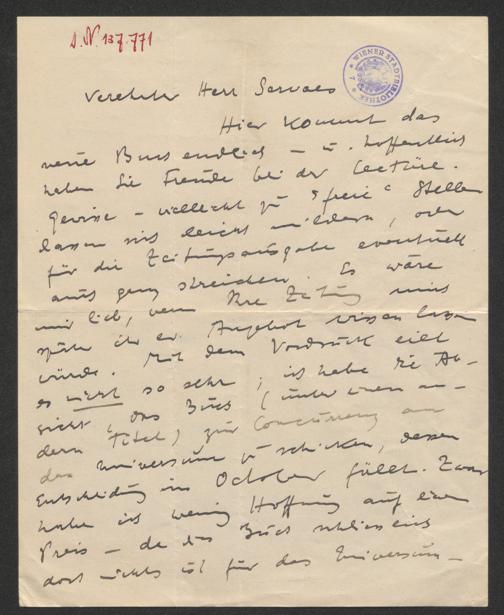 J. N. 137.771
WIENER STADTBIBLIOTHEK
Verehrter Herr Servaes
Hier kommt das
neue Buch endlich – u. hoffentlich
haben Sie Freude bei der Lectüre.
Gewisse – vielleicht zu "freie" Stellen
lassen sich leicht mildern, oder
für die Zeitungsausgabe eventuell
auch ganz streichen. Es wäre
mir lieb, wenn Ihre Zeitung mich
später ihr Angebot wissen lassen
würde. Mit dem Vordruck eilt
es nicht so sehr, ich habe die Ab-
sicht, das Buch (unter einem an-
dern Titel) zur Concurrenz an
das Universum zu schicken, dessen
Entscheidung im October fällt. Zwar
habe ich wenig Hoffnung auf einen
Preis – da das Buch schliesslich
doch nichts ist für das Universum –